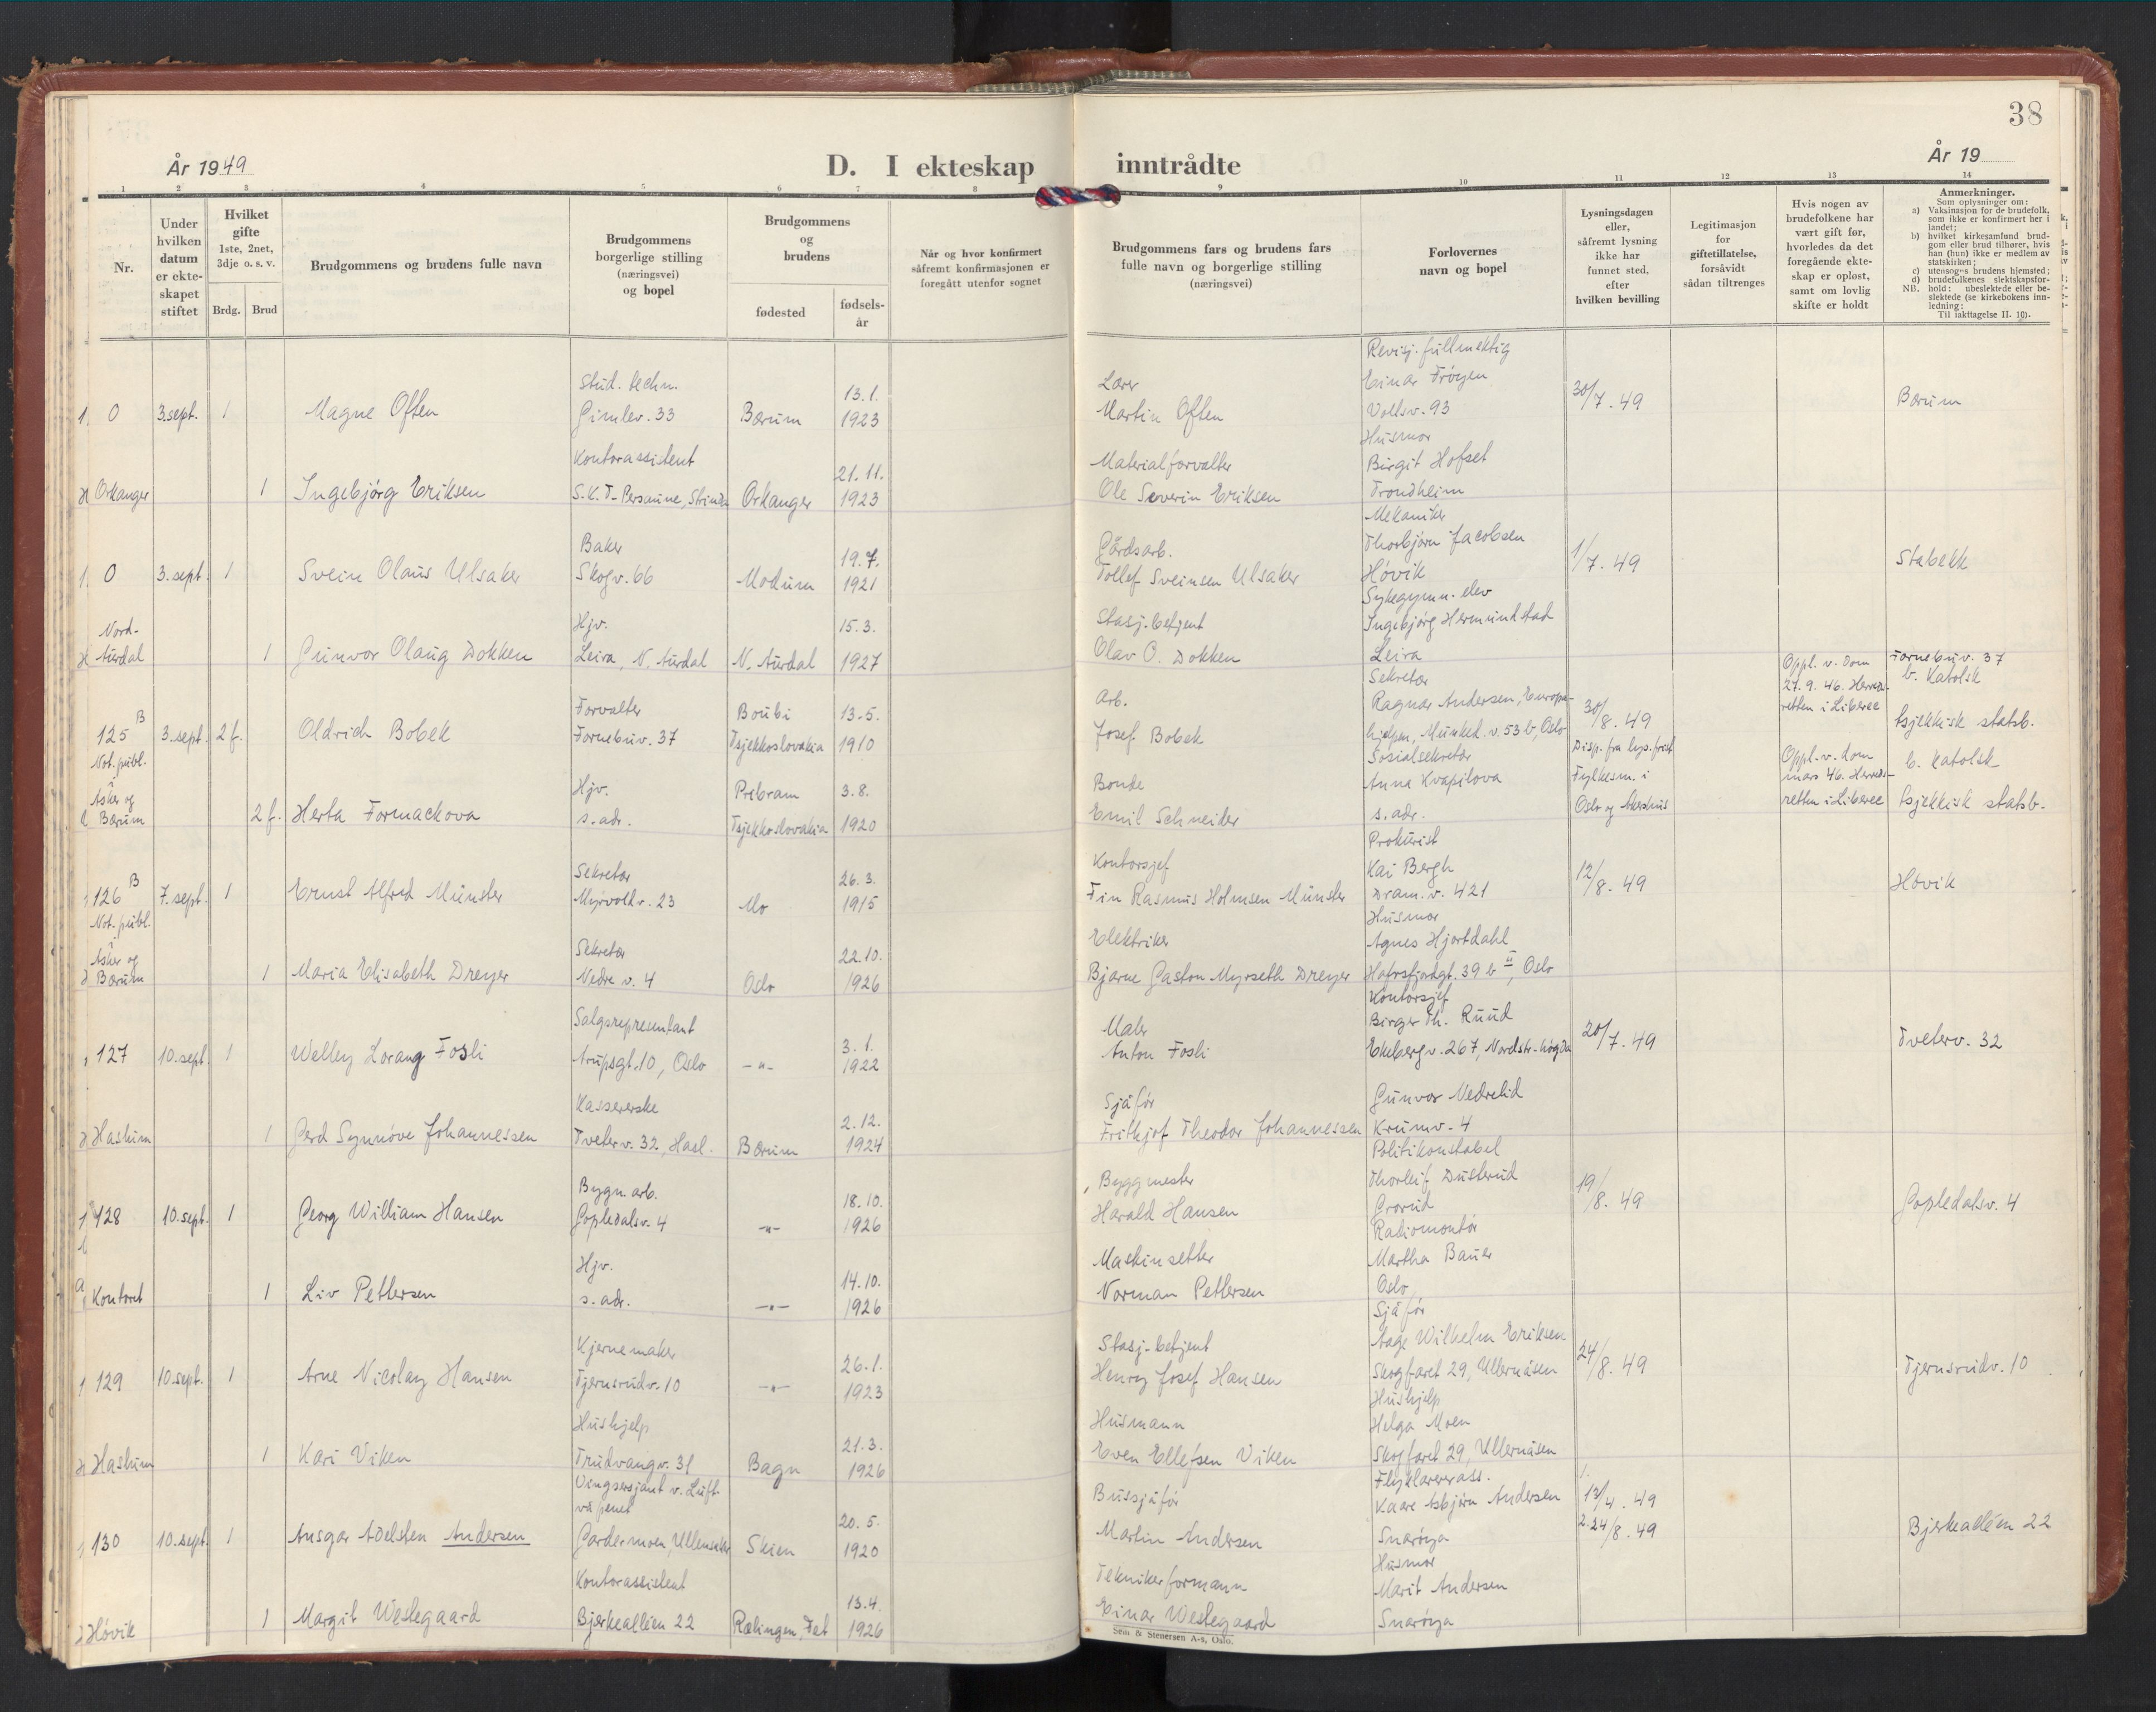 38
År 1949
D. I ekteskap inntrådte
År 19
1 2 3 4 5 6 7 8 9 10 11 12 13 14
Nr.
Under
hvilken
datum
er ekte-
skapet
stiftet
Hvilket
gifte
1ste, 2net,
3dje o. s. v.
Brdg. Brud
Brudgommens og brudens fulle navn
Brudgommens
borgerlige stilling
(næringsvei)
og bopel
Brudgommens
og
brudens
fødested
fødsels-
år
Når og hvor konfirmert
såfremt konfirmasjonen er
foregått utenfor sognet
Brudgommens fars og brudens fars
fulle navn og borgerlige stilling
(næringsvei)
Forlovernes
navn og bopel
Lysningsdagen
eller,
såfremt lysning
ikke har
funnet sted,
efter
hvilken bevilling
Legitimasjon
for
giftetillatelse,
forsåvidt
sådan tiltrenges
Hvis nogen av
brudefolkene har
vært gift før,
hvorledes da det
foregående ekte-
skap er opløst,
samt om lovlig
skifte er holdt
Anmerkninger.
Som oplysninger om:
a) Vaksinasjon for de brudefolk,
som ikke er konfirmert her i
landet;
b) hvilket kirkesamfund brud-
gom eller brud tilhører, hvis
han (hun) ikke er medlem av
statskirken;
c) utensogns brudens hjemsted;
d) brudefolkenes slektskapsfor-
hold: ubeslektede eller be-
slektede (se kirkebokens inn-
ledning:
NB. Til iakttagelse II. 10).
Revisj. fullmektig
Stud. techn. 13.1. Lærer Einar Frøyen 30/7. 49
0 3.sept. 1 Magne Often Gimlev. 33 Bærum 1923 Martin Often Vollsv. 93 Bærum
Husmor
Kontorassistent 21.11. Materialforvalter Birgit Hofset
Orkanger 1 Ingebjörg Eriksen S.K.T- Persaune, Strinda Orkanger 1923 Ole Severin Eriksen Trondheim
Mekaniker
Baker 19.7. Gårdsarb. Thorbjørn Jacobsen 1/7. 49
0 3.sept. 1 Svein Olaus Ulsaker Skogv. 66 Modum 1921 Tollef Sveinsen Ulsaker Hövik Stabekk
Sykegymn. elev
Nord- Hjv. 15.3. Stasj. betjent Ingebjörg Hermundstad
Aurdal 1 Gunvor Olaug Dokken Leira, N. Aurdal N. Aurdal 1927 Olav O. Dokken Leira
Sekretær Oppl. v. dom Fornebuv. 37
B Forvalter Boubi 13.5. Arb. Ragnar Andersen, Europa- 30/8. 49 27.9.46. Herreds- b. Katolsk
125 3.sept. 2 f. Oldrich Bobek Fornebuv. 37 Tsjekkoslovakia 1910 Josef Bobek hjelpen, Munked. v. 53 b, Oslo retten i Liberec tsjekkisk statsb.
Not. publ. Sosialsekretær Disp. fra lys. frist Oppl. v. dom
i Asker og Hjv. Pribram 3.8. Bonde Anna Kvapilova Fylkesm. i mars 46. Herreds- b. Katolsk
Bærum 2 f. Herta Formackova s. adr. Tsjekkoslovakia 1920 Emil Schneider s. adr. Oslo og Akershus retten i Liberec tsjekkisk statsb.
Prokurist
B Sekretær 26.3. Kontorsjef Kai Bergh 12/8. 49
126 7.sept. 1 Ernst Alfred Münster Myrvoldv. 23 Mo 1915 Fin Rasmus Holmsen Münster Dram. v. 421 Hövik
Not. publ. Husmor
i Asker og Sekretær 22.10. Elektriker Agnes Hjortdahl
Bærum 1 Maria Elisabeth Dreyer Nedre v. 4 Oslo 1926 Bjarne Gaston Myrseth Dreyer Hafrsfjordgt. 39 b II, Oslo
Kontorsjef
Salgsrepresentant 3.1. Maler Birger Th. Ruud 20/7. 49
127 10.sept. 1 Welley Lorang Fosli Arupsgt. 10, Oslo -"- 1922 Anton Fosli Ekebergv. 267, Nordstr. högda Tveterv. 32
Kassererske 2.12. Sjåför Gunvor Nedrelid
Haslum 1 Gerd Synnöve Johannessen Tveterv. 32, Hasl. Bærum 1924 Frithjof Theodor Johannessen Krumv. 4
Politikonstabel
Bygn. arb. 18.10. Byggmester Thorleif Dusterud 19/8. 49
128 10.sept. 1 Georg William Hansen Gopledalsv. 4 -"- 1926 Harald Hansen Grorud Gopledalsv. 4
Radiomontör
Hjv. 14.10. Maskinsetter Martha Bauer
Kontoret 1 Liv Pettersen s. adr. -"- 1926 Norman Pettersen Oslo
Sjåför
Kjernemaker 26.1. Stasj. betjent Aage Wilhelm Eriksen 24/8. 49
129 10.sept. 1 Arne Nicolay Hansen Tjernsrudv. 10 -"- 1923 Henry Josef Hansen Skogfaret 29, Ullernåsen Tjernsrudv. 10
Hushjelp
Hushjelp 21.3. Husmann Helga Moen
Haslum 1 Kari Viken Trudvangv. 31 Bagn 1926 Even Ellefsen Viken Skogfaret 29, Ullernåsen
Vingsersjant v. Luft- Flyklarererass. 1.
våpenet 20.5. Bussjåför Kaare Asbjörn Andersen 13/4. 49
130 10.sept. 1 Ansgar Adelsten Andersen Gardermoen, Ullensaker Skien 1920 Martin Andersen Snaröya 2. 24/8. 49 Bjerkealléen 22
Husmor
Kontorassistent 13.4. Teknikerformann Marit Andersen
Hövik 1 Margit Westegaard Bjerkealléen 22 Rælingen, Fet 1926 Einar Westegaard Snaröya
Sem & Stenersen A-s, Oslo.